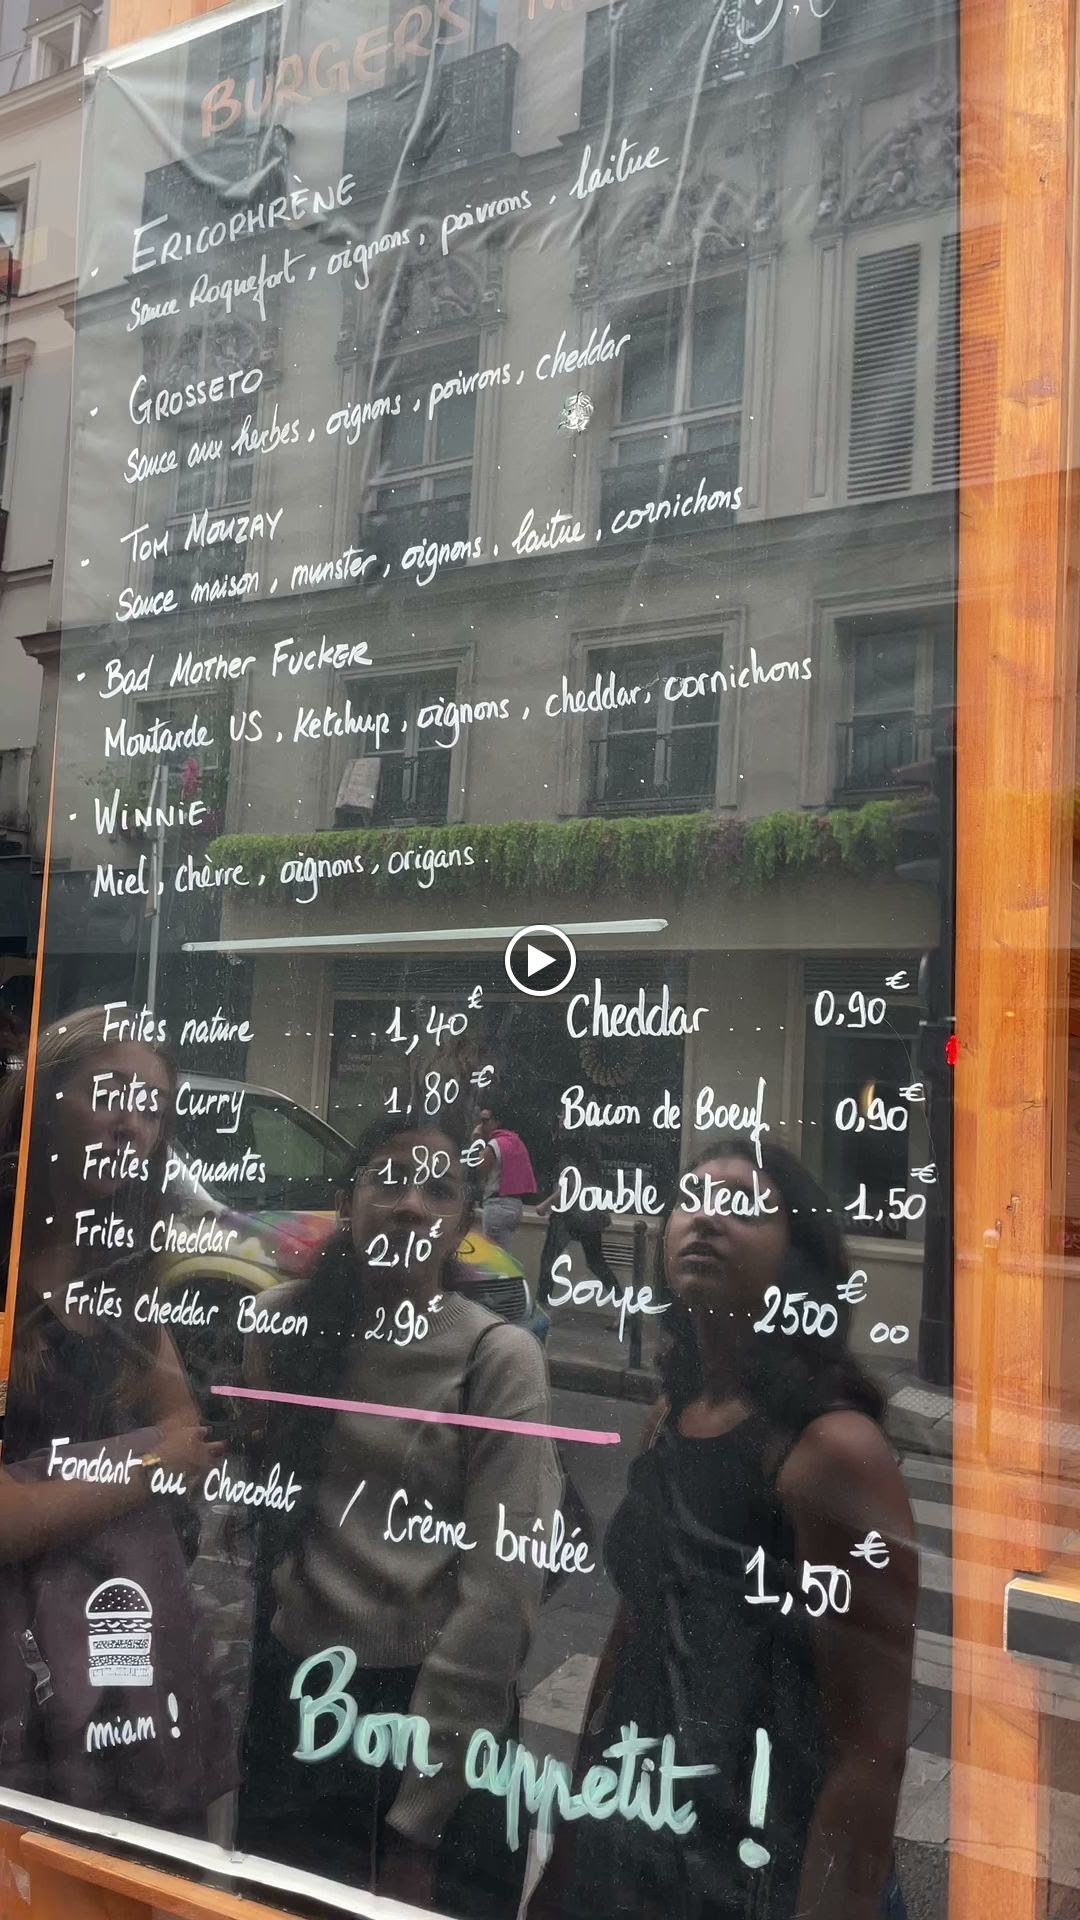 BURGERS
• ERICOPHRÈNE
Sauce Roquefort, oignons, poivrons, laitue
• GROSSETO
Sauce aux herbes, oignons, poivrons, cheddar
• TOM MOUZAY
Sauce maison, munster, oignons, laitue, cornichons
• Bad MoTher FuckER
Moutarde US, Ketchup, oignons, cheddar, cornichons
• WINNIE
Miel, chèvre, oignons, origans.
• Frites nature ..... 1,40€
• Frites Curry ..... 1,80€
• Frites piquantes .... 1,80€
• Frites Cheddar .... 2,10€
• Frites cheddar Bacon ... 2,90€
Cheddar .... 0,90€
Bacon de Boeuf .... 0,90€
Double Steak ... 1,50€
Soupe .... 2500€ 00
Fondant au chocolat / Crème brûlée
1,50€
miam !
Bon appetit !